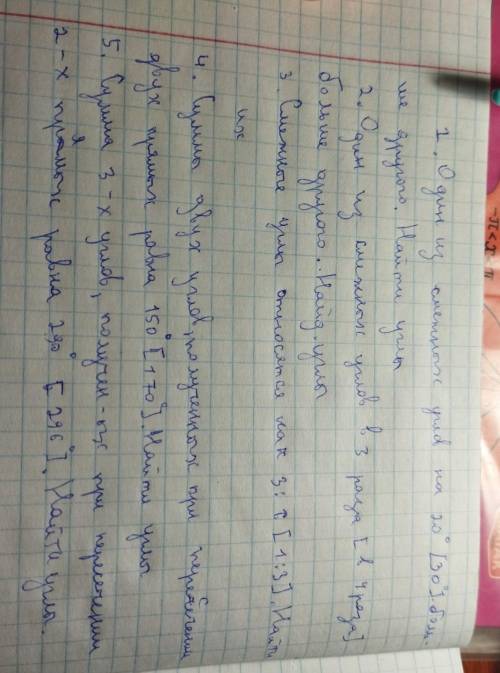 1. Один из смежных угла на 20° [30°] боль.
ше другого. Найти углы
2. Один из смежных углов в 3 раза [в 4 раза]
больше другого. Найд. углы
3. Смежные углы относятся как 3: [1:3]. Найти
их
4. Суммы двух углов, полученных при пересечении
двух прямых равна 150° [170°]. Найти углы
5. Сумма 3-х углов, получен-ых при пересечении
2-х прямых равна 290° [296°]. Найти углы.